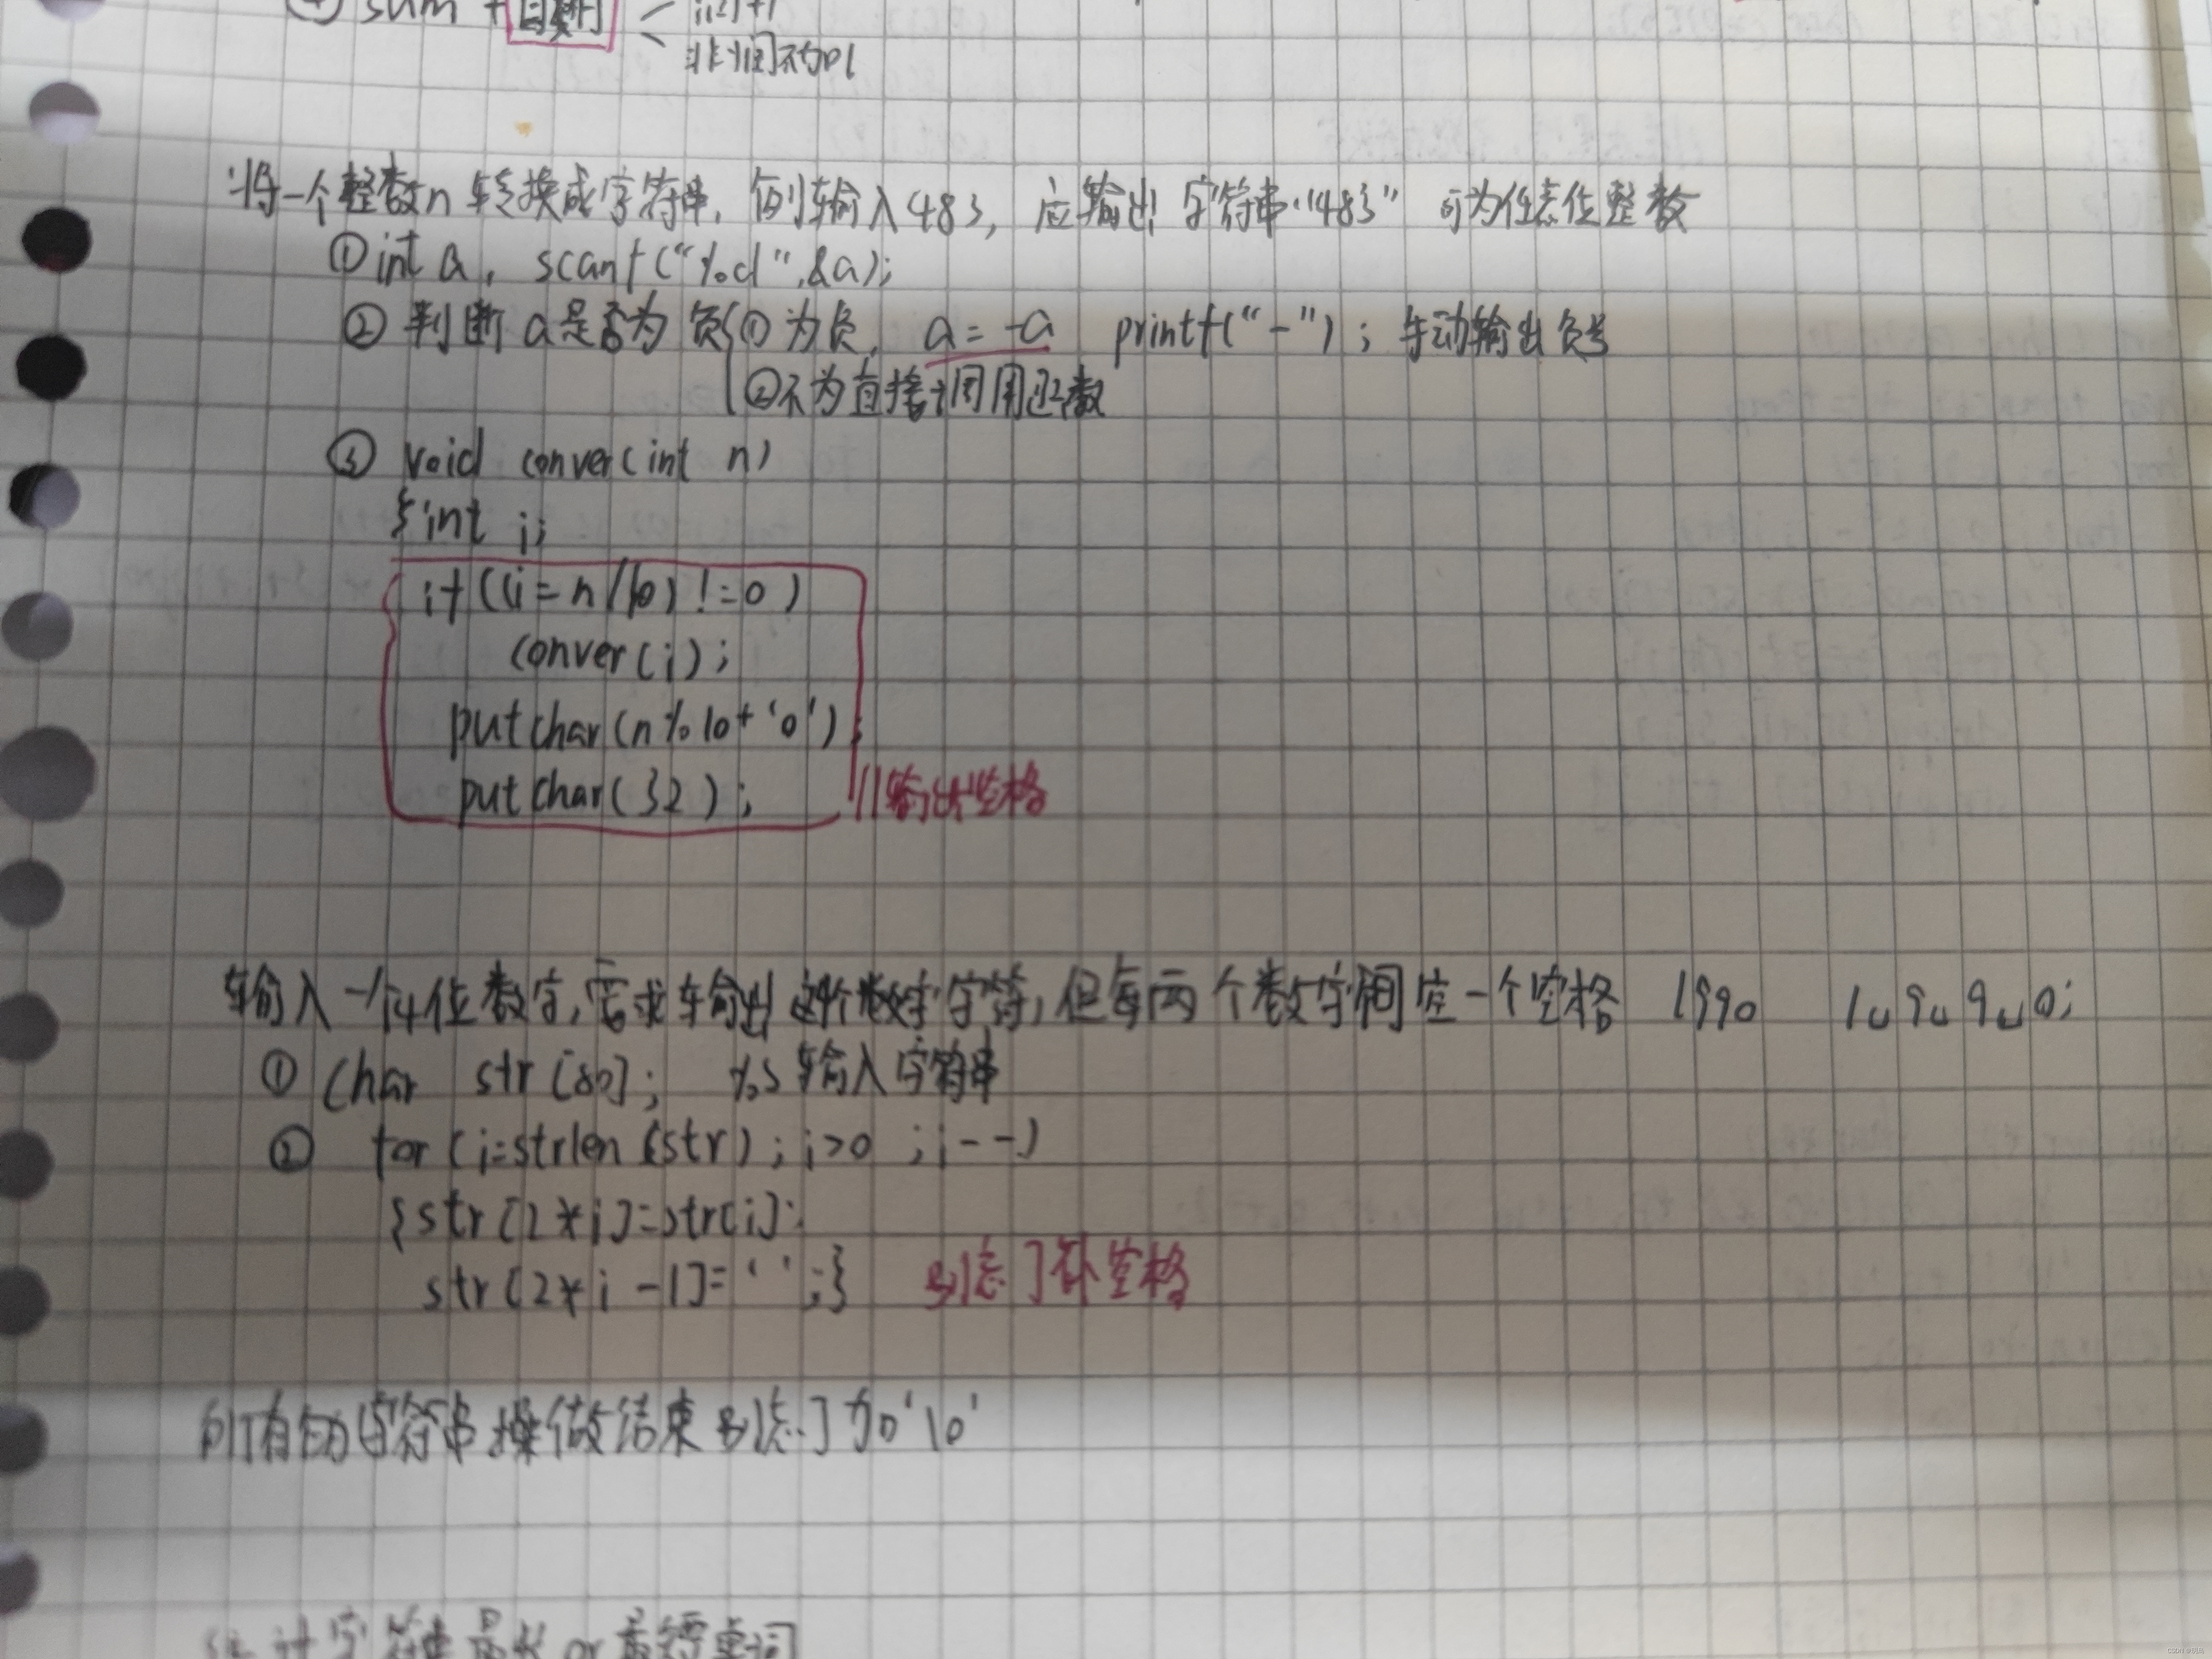 sum +
将一个整数n 转换成字符串, 例输入483, 应输出 字符串"483" 可为任意位整数
① int a, scanf("%d",&a);
② 判断a是否为负 ① 为负, a = -a printf("-"); 手动输出负号
② 不为直接调用函数
③ void conver(int n)
{int i;
if((i=n/10)!=0)
conver(i);
putchar(n%10+'0');
putchar(32); //输出空格
输入一个4位数字,需求输出这4个数字字符,但每两个数字间空一个空格 1990 1␣9␣9␣0;
① char str[80]; %s输入字符串
② for(i=strlen(str);i>0;i--)
{str[2*i]=str[i];
str[2*i-1]=' ';} 别忘了补空格
所有的字符串操做结束别忘了加'\0'
统计字符串最长or最短单词